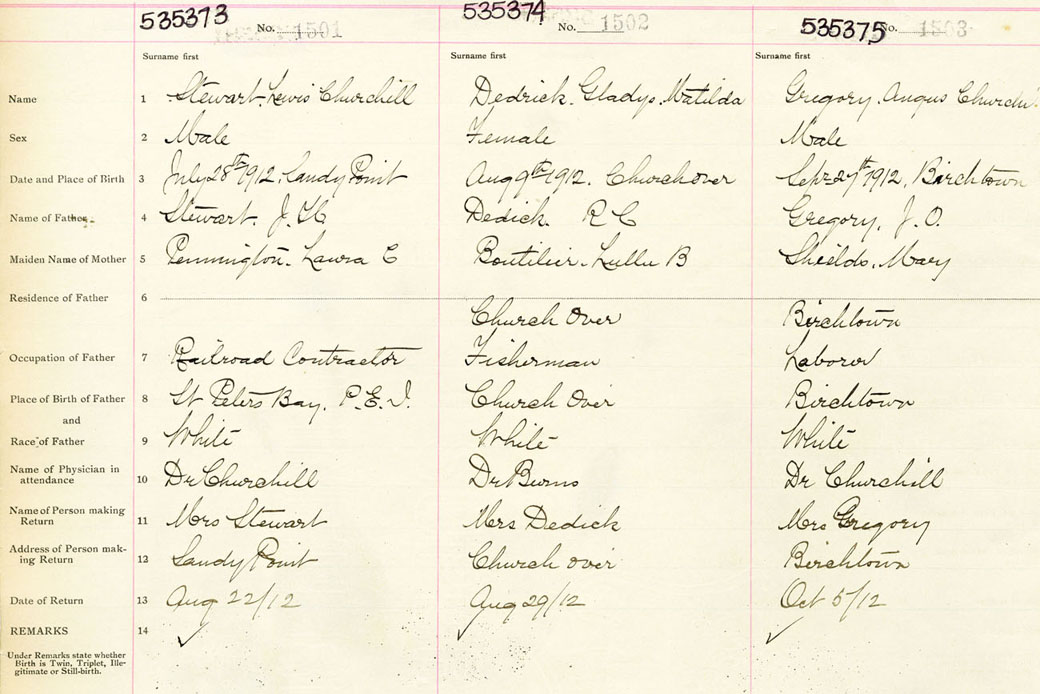 535373 535374 535375
No. 1501 No. 1502 No. 1503
Surname first Surname first Surname first
Name 1 Stewart, Lewis Churchill Dedrick. Gladys. Matilda Gregory. Angus
Sex 2 Male Female Male
Date and Place of Birth 3 July 28th 1912. Sandy Point Aug 9th 1912. Churchover Sept 27th 1912, Birchtown
Name of Father 4 Stewart. J. H Dedick. R C Gregory, J. O.
Maiden Name of Mother 5 Pennington. Laura E Boutilier. Lullu B Shields. Mary
Residence of Father 6
Church Over Birchtown
Occupation of Father 7 Railroad Contractor Fisherman Laborer
Place of Birth of Father 8 St Peters Bay, P.E.I. Church Over Birchtown
and
Race of Father 9 White White White
Name of Physician in
attendance 10 Dr Churchill Dr Burns Dr Churchill
Name of Person making
Return 11 Mrs Stewart Mrs Dedick Mrs Gregory
Address of Person mak-
ing Return 12 Sandy Point Church over Birchtown
Date of Return 13 Aug 22/12 Aug 29/12 Oct 5/12
REMARKS 14
Under Remarks state whether
Birth is Twin, Triplet, Ille-
gitimate or Still-birth.